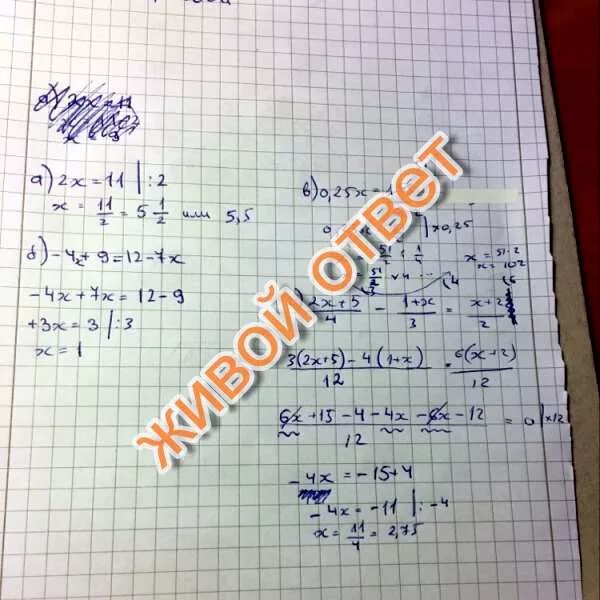 а) 2x = 11 | :2
x = 11/2 = 5 1/2 или 5,5
б) -4x + 9 = 12 - 7x
-4x + 7x = 12 - 9
+3x = 3 | :3
x = 1
в) 0,25x =
| x0,25
x = 51·2
x = 102
(2x+5)/4 - (1+x)/3 = (x+2)/2
(3(2x+5) - 4(1+x))/12 = 6(x+2)/12
(6x + 15 - 4 - 4x - 6x - 12)/12 = 0 | x12
-4x = -15+4
-4x = -11 | : -4
x = 11/4 = 2,75
ЖИВОЙ ОТВЕТ